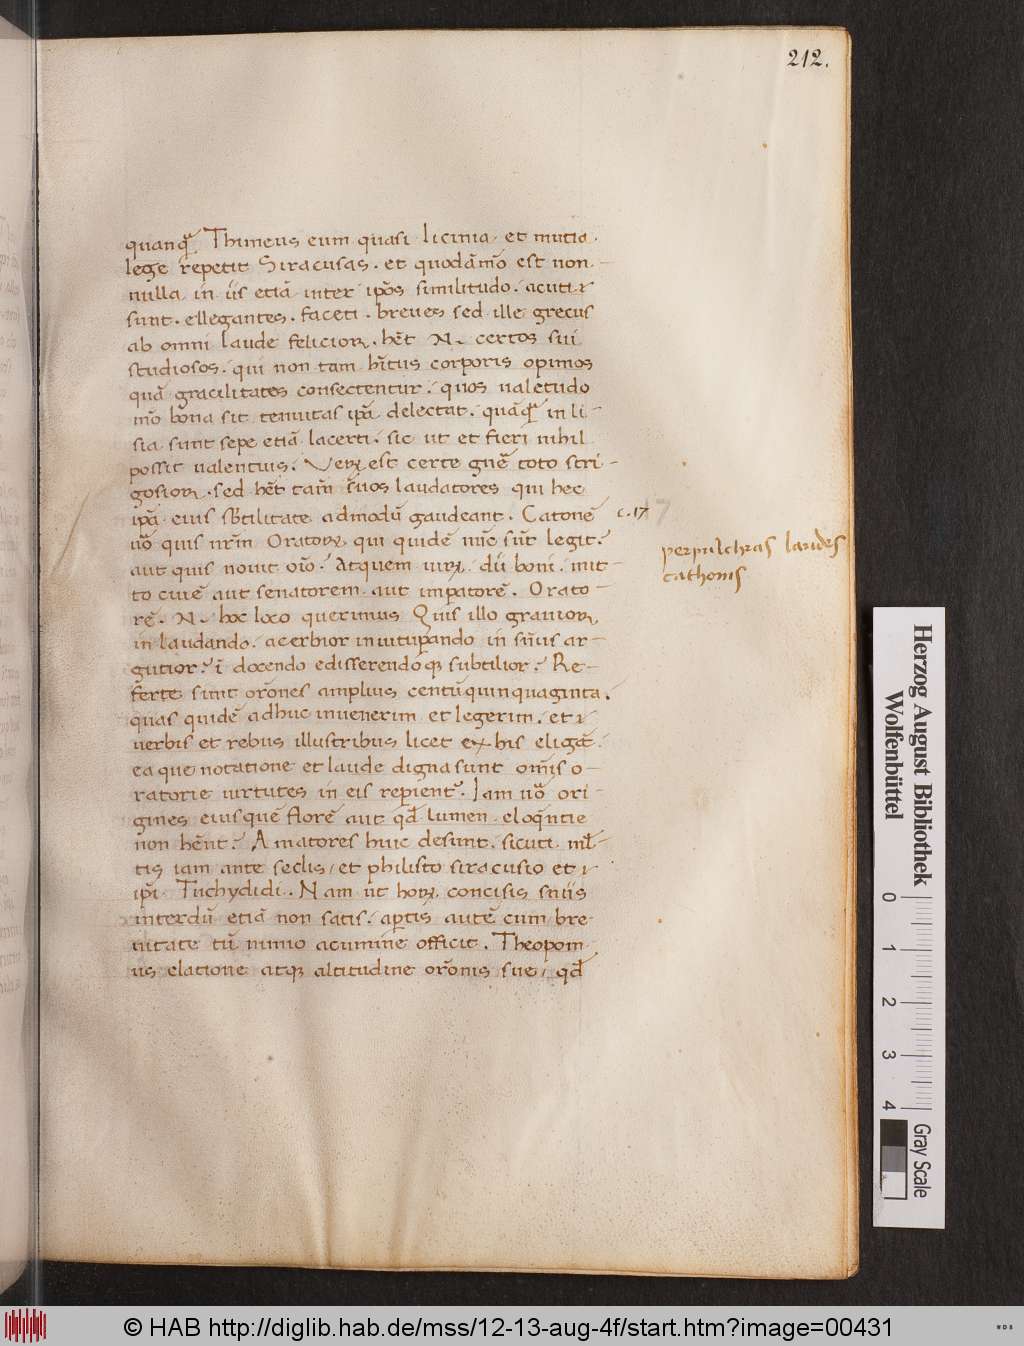 212.
quanq̃ Thimeus eum quasi licinia et mutia
lege repetit Siracusas. et quodãmõ est non
nulla in iis etiã inter ipõs similitudo. acuti
sunt. ellegantes. faceti. breues sed ille grecus
ab omni laude felicior. hẽt N. certos sui
studiosos. qui non tam hĩtus corporis opimos
quã gracilitates consectentur. quos ualetudo
mõ bona sit tenuitas ipã delectat. quãq̃ in li-
sia sunt sepe etiã lacerti. sic ut et fieri nihil
possit ualentius. Verũ est certe gñe toto stri-
gosior. sed hẽt tam̃ suos laudatores qui hec
ipã eius sb̃tilitate admodũ gaudeant. Catonẽ
uõ quis nr̃m Oratorũ qui quidẽ nũc sũt legit?
aut quis nouit oĩo? Atquem uirũ. dii boni. mit-
to ciuẽ aut senatorem aut imperatorẽ. Orato-
rẽ. N. hoc loco querimus Quis illo grauior
in laudando. acerbior in uituperando in sñiis ar-
gutior? ĩ docendo edisserendoq; subtilior? Re-
ferte sunt orõnes amplius centũ quinquaginta.
quas quidẽ adhuc inuenerim et legerim. et
uerbis et rebus illustribus licet ex his eligãt
ea que notatione et laude digna sunt om̃is o-
ratorie uirtutes in eis reperient̃. Iam uõ ori-
gines eius quẽ florẽ aut qd̃ lumen eloq̃ntie
non hẽnt? Amatores huic desunt. sicuti ml̃-
tis iam ante seclis, et philisto siracusio et
ipĩ Tuchydidi. Nam ut horũ concisis sñiis
interdũ etiã non satis. apertis autẽ cum bre-
uitate tũ nimio acumine officit. Theopom-
us elatione atq; altitudine orõnis sue, qd̃
c. 17
perpulchras laudes
cathonis
Herzog August Bibliothek
Wolfenbüttel
0 1 2 3 4
Gray Scale
© HAB http://diglib.hab.de/mss/12-13-aug-4f/start.htm?image=00431